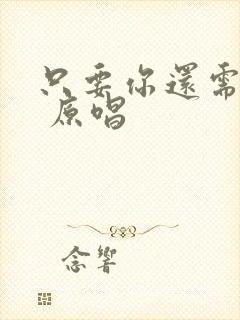 只要你還需
原唱
念響